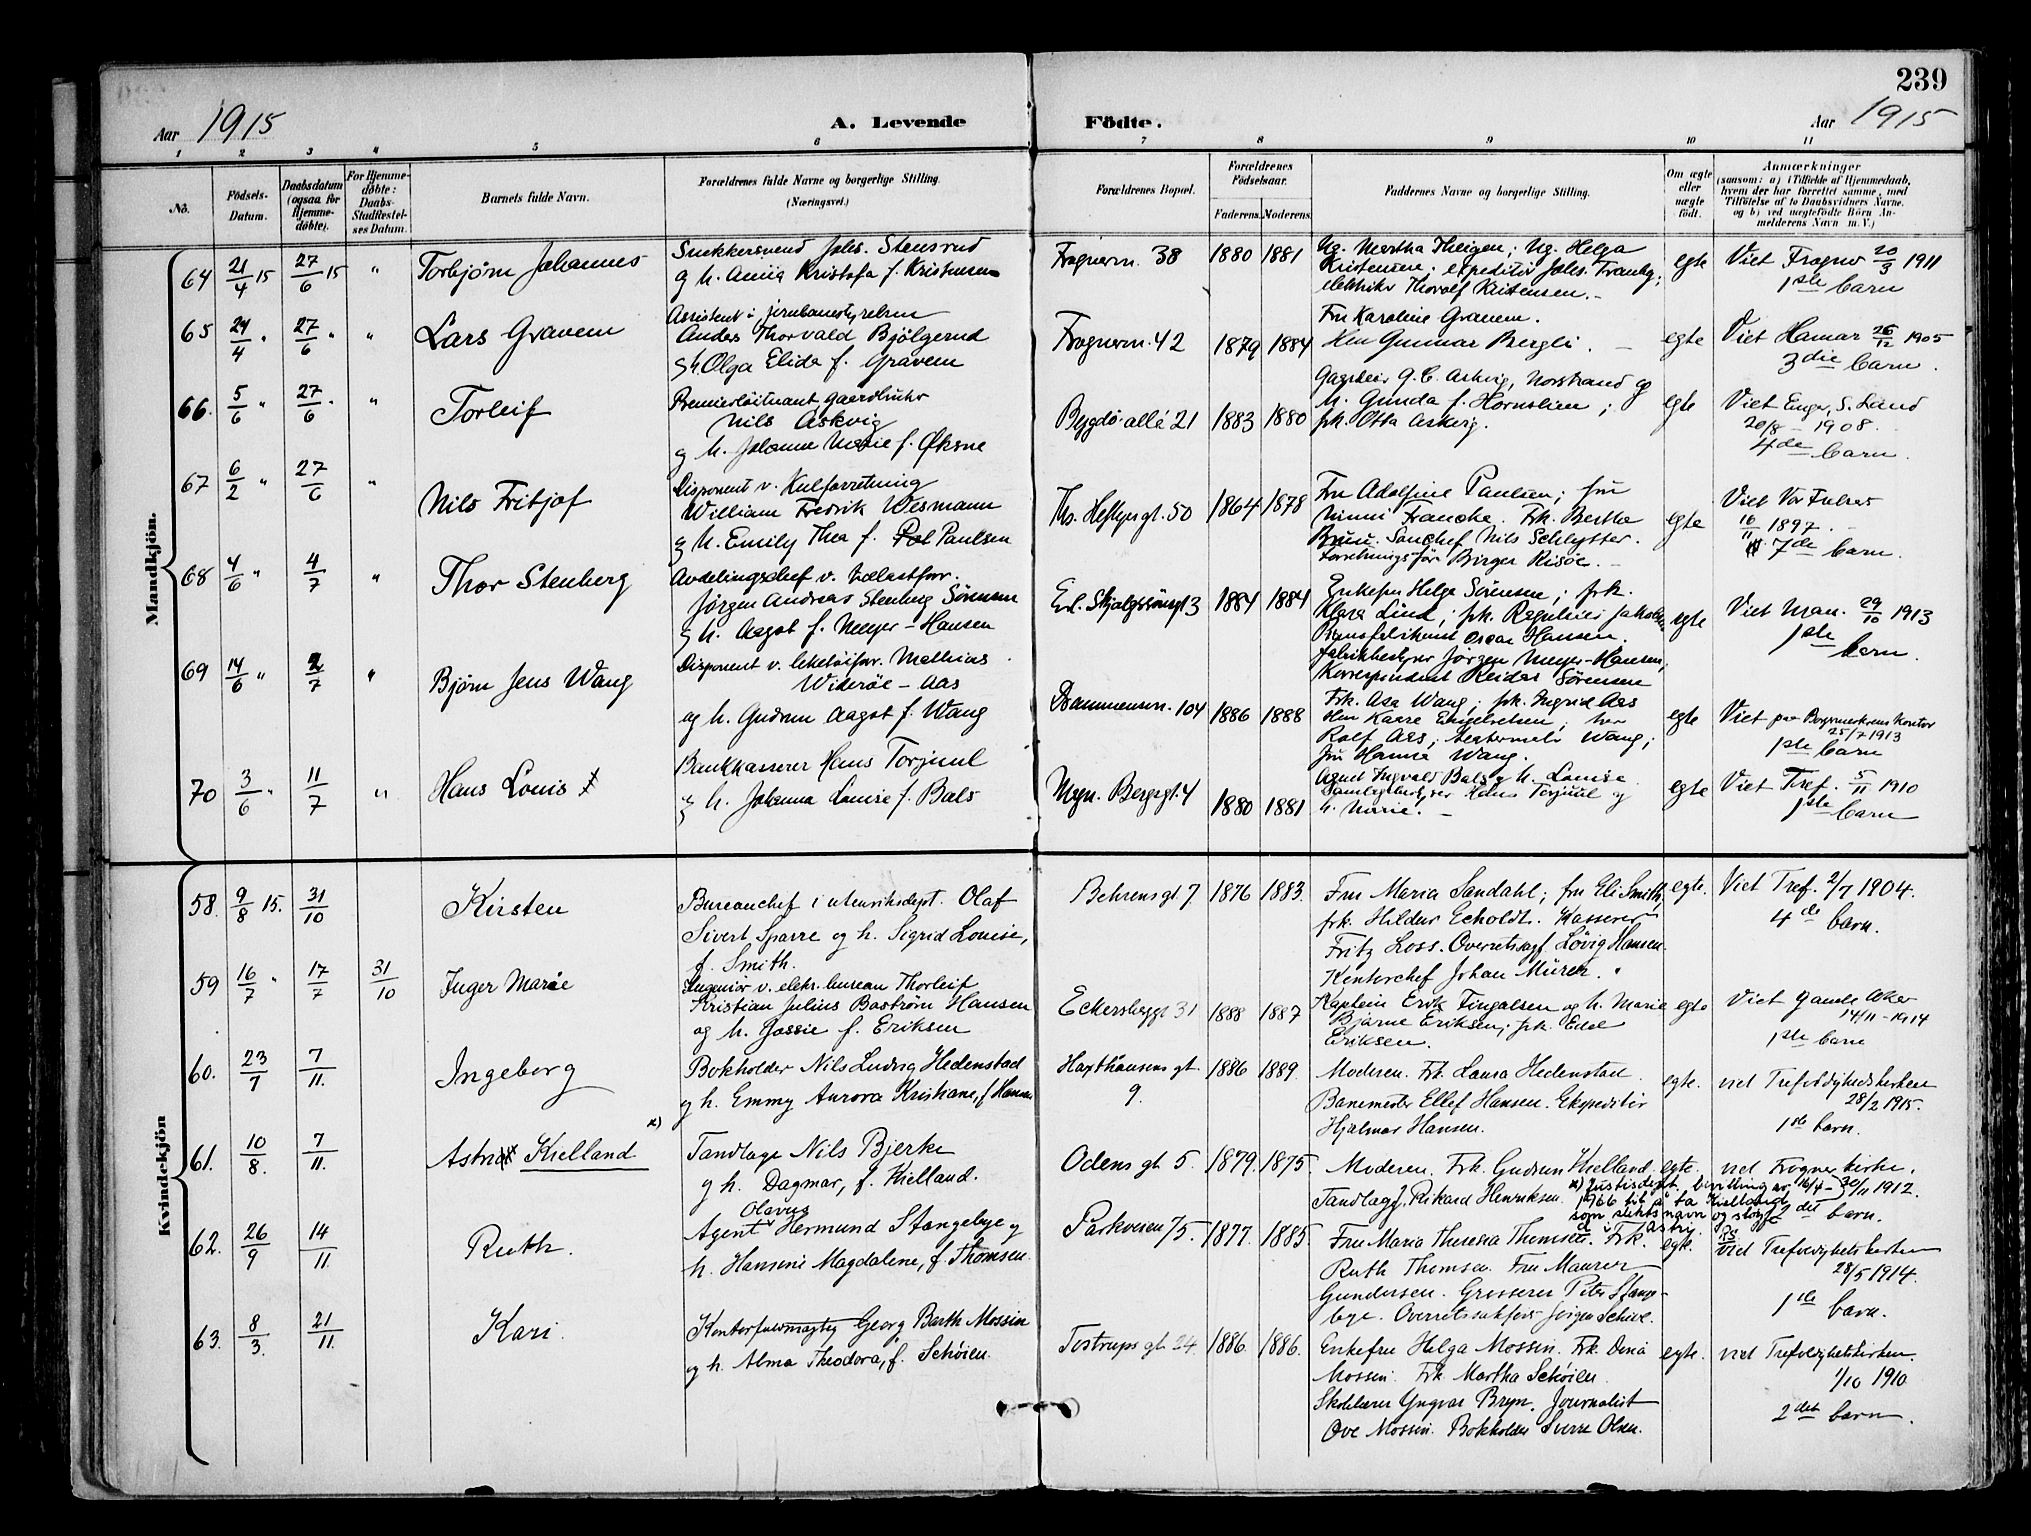 239
Aar 1915
A. Levende
Födte.
Aar 1915
1 2 3 4 5 6 7 8 9 10 11
No.
Födsels-Datum.
Daabsdatum (ogsaa for Hjemme-døbte).
For Hjemme-døbte: Daabs-Stadfæstel-ses Datum.
Barnets fulde Navn.
Forældrenes fulde Navne og borgerlige Stilling.
(Næringsvei.)
Forældrenes Bopæl.
Forældrenes Födselsaar.
Faderens. Moderens.
Faddernes Navne og borgerlige Stilling.
Om ægte eller uægte født.
Anmærkninger
(saasom: a) i Tilfælde af Hjemmedaab,
hvem der har forrettet samme, med
Tilföielse af to Daabsvidners Navne.
og b) ved uægtefödte Börn An-
melderens Navn m. V.)
Mandkjön.
64 21/4 15 27/6 15 " Torbjørn Johannes
Snekkersvend Johs. Stensrud
og h. Anna Kristofa f. Kristensen
Frognerv. 38 1880 1881
Ug. Martha Theigen; Ug. Helga
Kristensen; expeditør Johs. Tranby;
elektriker Thorolf Kristensen.
egte Viet Frogner 20/3 1911
1ste barn
65 24/4 " 27/6 " " Lars Gravem
Assistent i jernbanestyrelsen
Anders Thorvald Bjølgerud
og h. Olga Elida f. Gravem
Frognerv. 42 1879 1884
Fru Karoline Gravem.
Herr Gunnar Bergli.
egte Viet Hamar 26/12 1905
3die barn.
66. 5/6 " 27/6 " " Torleif
Premierløitnant gaardbruker
Nils Askvig
og h. Johanne Marie f. Øksne
Bygdö allé 21 1883 1880
G. C. Askvig, Norstrand og
h. Gunda f. Hornslien;
frk. Otta Askvig.
egte Viet Enger, S. Land
20/8 - 1908.
4de barn.
67 6/2 " 27/6 " Nils Fritjof
Disponent v. Kulforretning
William Fredrik Wesmann
og h. Emily Thea f. Paulsen
Ths. Heftyesgt. 50 1864 1878
Fru Adolfine Paulsen; fru
Ninni Francke. Frk. Berthe
Bruu. Nils Schlytter.
Forretningsfør Birger Risöe.
egte Viet Vor Frelser
16/11 1897.
7de barn.
68 4/6 " 4/7 " Thor Stenberg
Avdelingschef v.
Jørgen Andreas Stenberg Sörensen
og h. Aagot f. Meyer-Hansen
Erl. Skjalgssönsgt 3 1884 1884
Enkefru Helga Sörensen; frk.
Klara Lind; frk. Reguline
Pianofabrikant Oscar Hansen.
fabrikbestyrer Jørgen Meyer-Hansen;
Korrespondent Reidar Sörensen
egte Viet Man. 29/10 1913
1ste barn.
69 14/6 " 2/7 " Bjørn Jens Wang
Disponent v. leketøiforr. Mathias
Widerøe-Aas
og h. Gudrun Aagot f. Wang
Drammensv. 104 1886 1888
Frk. Asa Wang; frk. Ingrid Aas
Herr Kaare Engebretsen; herr
Rolf Aas; Wang;
fru Hanna Wang.
egte Viet paa Borgmesterens kontor
25/7 1913
1ste barn
70 3/6 " 11/7 " Hans Louis
Bankkasserer Hans Torjuul
og h. Johanna Louise f. Bals
Magn. Bergsgt. 4 1880 1881
Agent Ingvald Bals og h. Louise
Hans Torjuul og
h. Marie.
egte Viet Tref. 5/11 1910
1ste barn
Kvindekjön
58. 9/8 15. 31/10 Kirsten
Bureauchef i utenriksdept. Olaf
Sivert Sparre og h. Sigrid Louise,
f. Smith.
Behrensgt. 7 1876 1883.
Fru Maria Sandahl; fru Eli Smith,
frk. Hildur Echoldt. Kasserer
Fritz Loss. Overretssagf. Løvig Hansen.
Kontorchef Johan Mürer.
egte. Viet Tref. 2/7 1904.
4de barn.
59 16/7 " 17/7 31/10 Inger Marie
Ingeniør v. elekr. bureau Thorleif
Kristian Julius Bastrøm Hansen
og h. Jossie f. Eriksen
Eckersberggt 31 1888 1887
Kaptein Erik Fingalsen og h. Marie
Bjarne Eriksen; frk. Else
Eriksen.
egte Viet Gamle Aker
14/11 - 1914
1ste barn
60. 23/7 7/11. Ingeborg
Bokholder Nils Ludvig Hedenstad
og h. Emmy Aurora Kristiane, f. Hansen
Haxthausens gt. 9. 1886 1889.
Moderen. Frk. Laura Hedenstad
Banemester Ellef Hansen. Ekspeditör
Hjalmar Hansen.
egte. viet Trefoldighedskirken
28/2 1915.
1ste barn.
61. 10/8. 7/11. Astri Kielland x)
Tandlæge Nils Bjerke
og h. Dagmar, f. Kielland.
Odens gt. 5. 1879. 1875.
Moderen. Frk. Gudrun Kielland.
Tandlægef. Rikard Henriksen
egte. viet Frogner kirke.
30/11 1912.
2det barn.
x) Justisdept. bevilling av 16/4-
1966 til å ta Kielland
som slektsnavn og sløyfe
d i Astri
62. 26/9 14/11 Ruth.
Olavus
Agent Hermund Stangebye og
h. Hansine Magdalene, f. Thomsen.
Parkveien 75. 1877. 1885.
Fru Maria Theresia Thomsen. Frk.
Ruth Thomsen. Fru Maurer
Gundersen. Grosserer Peter Stange-
bye. Overretssakfører Jørgen Schive.
egte. viet Trefoldighetskirken
28/5 1914.
1ste barn.
63. 8/3. 21/11. Kari.
Kontorfuldmægtig Georg Barth Mossin
og h. Alma Theodora, f. Schöien.
Tostrups gt. 24. 1886. 1886.
Enkefru Helga Mossin. Frk. Dina
Mossin. Frk. Martha Schöien
Skolelærer Yngvar Bryn. Journalist
Ove Mossin. Bokholder Sverre Olsen.
egte. viet Trefoldighetskirken.
1/10 1910
2det barn.